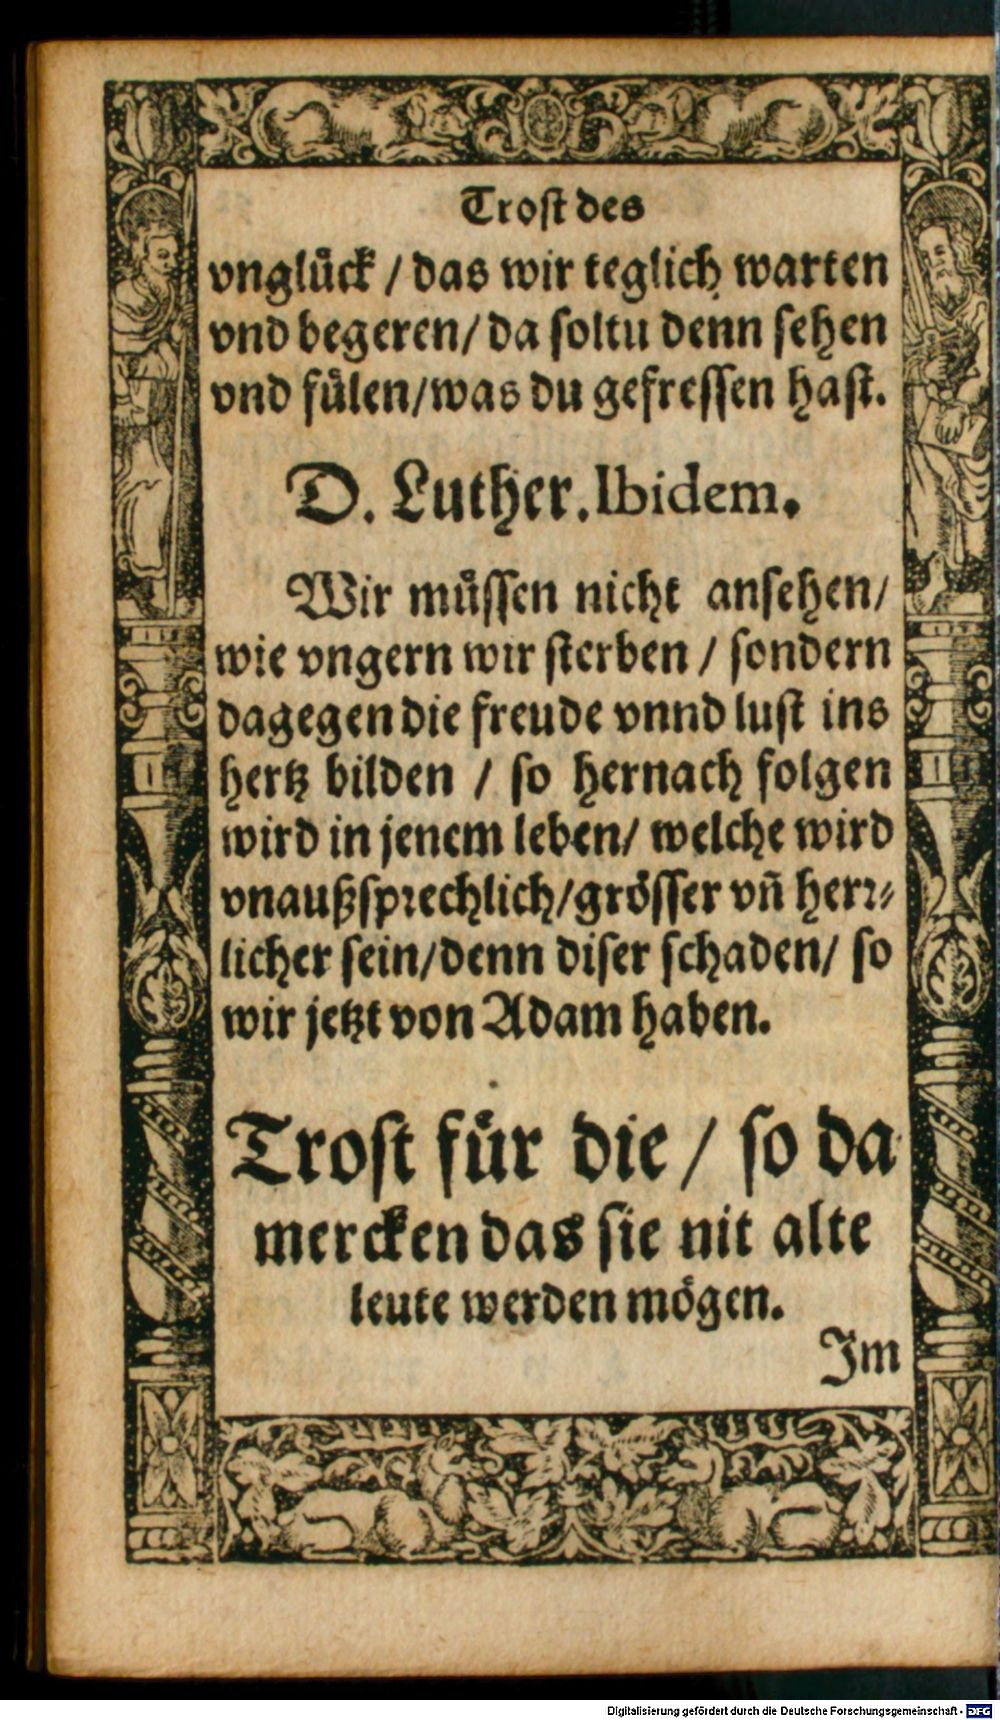 Trost des
vnglück / das wir teglich warten
vnd begeren/ da soltu denn sehen
vnd fülen/was du gefressen hast.
D. Luther. Ibidem.
Wir müssen nicht ansehen/
wie vngern wir sterben / sondern
dagegen die freude vnnd lust ins
hertz bilden / so hernach folgen
wird in jenem leben/ welche wird
vnaußsprechlich/grösser vñ herr-
licher sein/denn diser schaden/ so
wir jetzt von Adam haben.
Trost für die / so da
mercken das sie nit alte
leute werden mögen.
Im
Digitalisierung gefördert durch die Deutsche Forschungsgemeinschaft - DFG